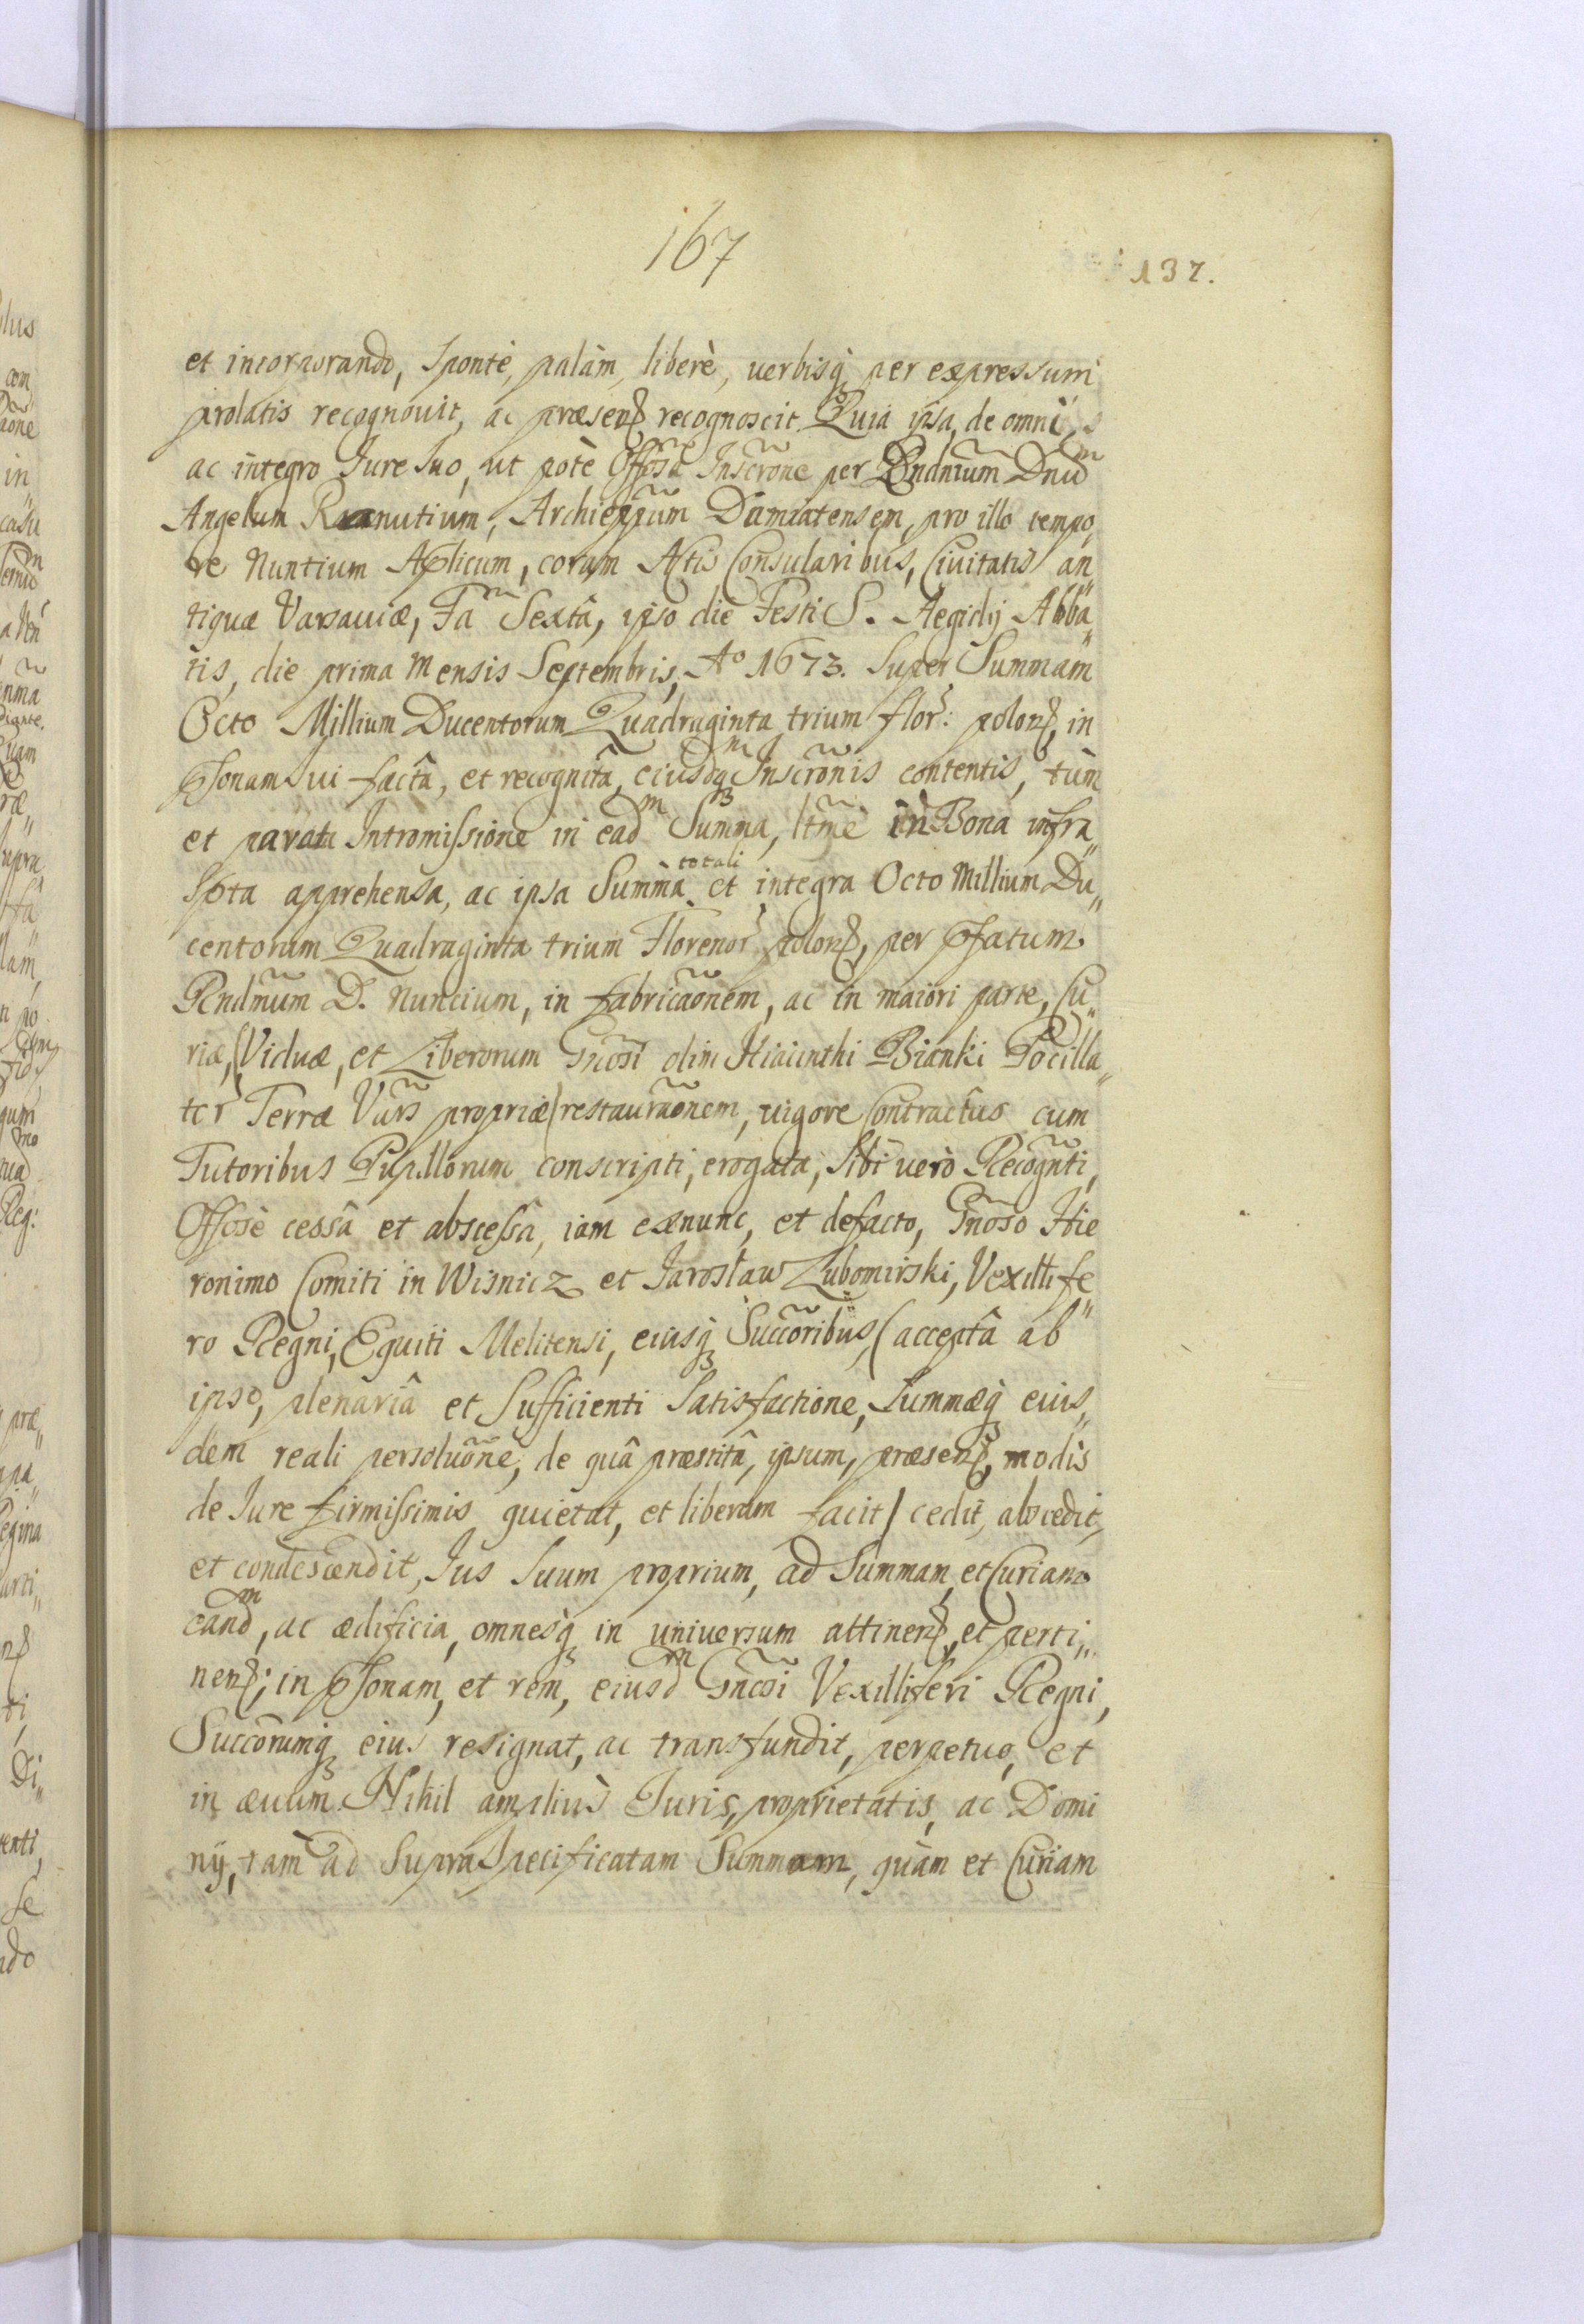 167
137.
et incorporando, Spontè, palàm, liberè, uerbisq₃ per expressum
prolatis recognouit, ac præsenꝭ recognoscit. Quia ipsa, de omni,
ac integro Jure suo, ut potè Offosa Inscr̃one per Rndm̃um Dnũm
Angelum Ranutium, Archiep̃pum Damiatensem, pro illo tempo
re Nuntium Aplicum, coram Actis Consularibus, Ciuitatis an„
tiquæ Varsauiæ, Fa Sextâ, ipso die Festi S. Aegidij Abba„
tis, die prima Mensis Septembris, Aº 1673. Super Summam
Octo Millium Ducentorum Quadraginta trium flor: polonꝭ, in
Psonam sui factâ, et recognitâ, eiusdmq₃ Inscr̃onis contentis, tùm
et parata Intromissione in eadm Summa, ltm̃e in Bona infra„
Spta apprehensa, ac ipsa Summa totali et integra Octo Millium Du„
centorum Quadraginta trium Florenor polonꝭ, per Pfatum
Rndm̃um D. Nuncium, in fabricaõnem, ac in maiori parte, Cu„
riæ, (Viduæ, et Liberorum Gñosi olim Hiacinthi Bianki Pocilla„
tor Terræ Vars propriæ) restauraõnem, uigore Contractûs cum
Tutoribus Pupillorum conscripti, erogata, sibi uerò Recogñti,
Offosè cessâ et abscessâ, iam exnunc, et defacto, Gñoso Hie
ronimo Comiti in Wisnicz et Jarosław Lubomirski, Vexillife„
ro Regni, Equiti Melitensi, eiusq₃ Succõribus, (acceptâ ab
ipso, plenariâ et Sufficienti Satisfactione, Summæq₃ eius„
dem reali persoluõne, de quâ præstitâ, ipsum, præsenꝭ, modis
de Jure firmissimis quietat, et liberum facit) cedit, abscedit,
et condescendit, Jus Suum proprium, ad Summam, et Curiam
eandm, ac ædificia, omnesq₃ in uniuersum attinenꝭ, et perti„
nenꝭ; in Psonam, et rem, eiusdm Gñosi Vexilliferi Regni,
Succorumq₃ eius resignat, ac transfundit, perpetuo, et
in æuum. Nihil ampliùs Juris, proprietatis, ac Domi
nij, tàm ad Supra Specificatam Summam, quàm et Curiam